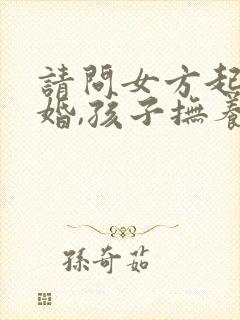 請問女方起
婚,孩子撫養
孫奇茹